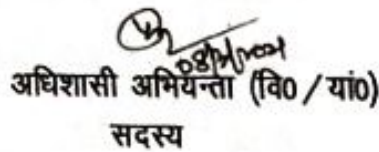 अधिशासी अभियन्ता (वि0 / यां0)
सदस्य